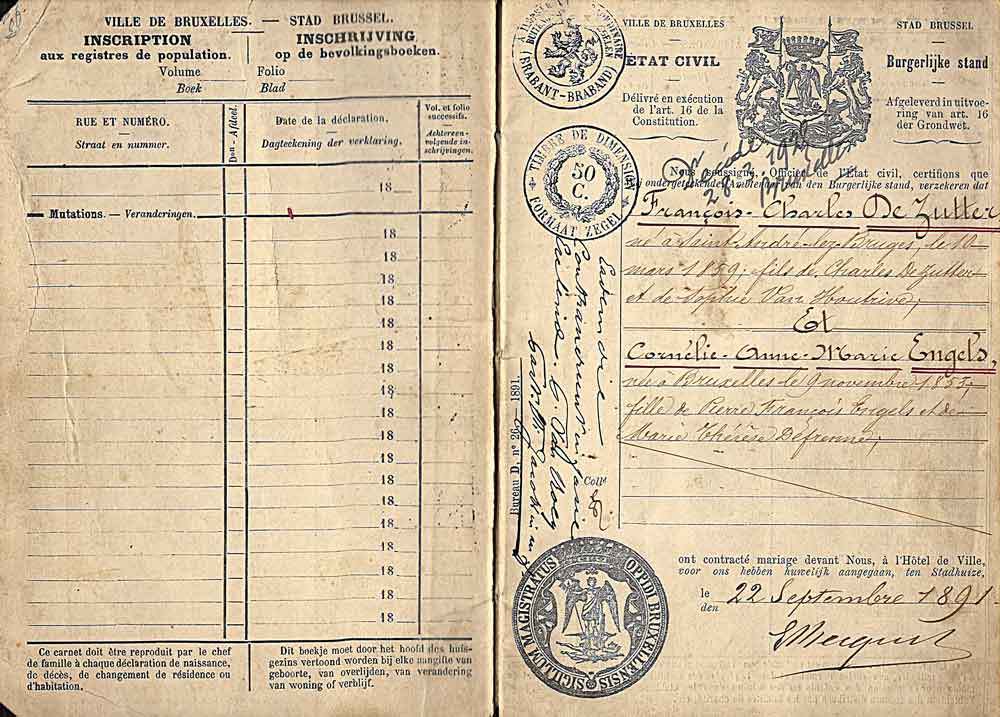 VILLE DE BRUXELLES. — STAD BRUSSEL.
INSCRIPTION
aux registres de population.
INSCHRIJVING
op de bevolkingsboeken.
Volume Folio
Boek Blad
RUE ET NUMÉRO.
Straat en nummer.
Don - Afdeel.
Date de la déclaration.
Dagteekening der verklaring.
Vol. et folio
successifs.
Achtereen-
volgende in-
schrijvingen.
18
Mutations. — Veranderingen.
18
18
18
18
18
18
18
18
18
18
18
18
18
18
18
18
Ce carnet doit être reproduit par le chef
de famille à chaque déclaration de naissance,
de décès, de changement de résidence ou
d'habitation.
Dit boekje moet door het hoofd des huis-
gezins vertoond worden bij elke aangifte van
geboorte, van overlijden, van verandering
van woning of verblijf.
BRABANT-BRABAND
TIMBRE DE DIMENSION
50
C.
FORMAAT ZEGEL
Bureau D, n° 26 — 1891.
VILLE DE BRUXELLES
ÉTAT CIVIL
Délivré en exécution
de l'art. 16 de la
Constitution.
STAD BRUSSEL
Burgerlijke stand
Afgeleverd in uitvoe-
ring van art. 16
der Grondwet.
Nous soussigné, Officier de l'État civil, certifions que
Wij ondergeteekende, Ambtenaar van den Burgerlijke stand, verzekeren dat
François-Charles De Zutter
né à Saint-André-lez-Bruges, le 10
mars 1859; fils de Charles De Zutter
et de Sophie Van Houtrive;
Et
Cornélie-Anne-Marie Engels,
née à Bruxelles le 9 novembre 1855;
fille de Pierre François Engels et de
Marie Thérèse Defrenne;
Collé
ont contracté mariage devant Nous, à l'Hôtel de Ville,
voor ons hebben huwelijk aangegaan, ten Stadhuize,
le
den
22 Septembre 1891
SIGILLUM MAGISTRATUS OPPIDI BRUXELLENSIS